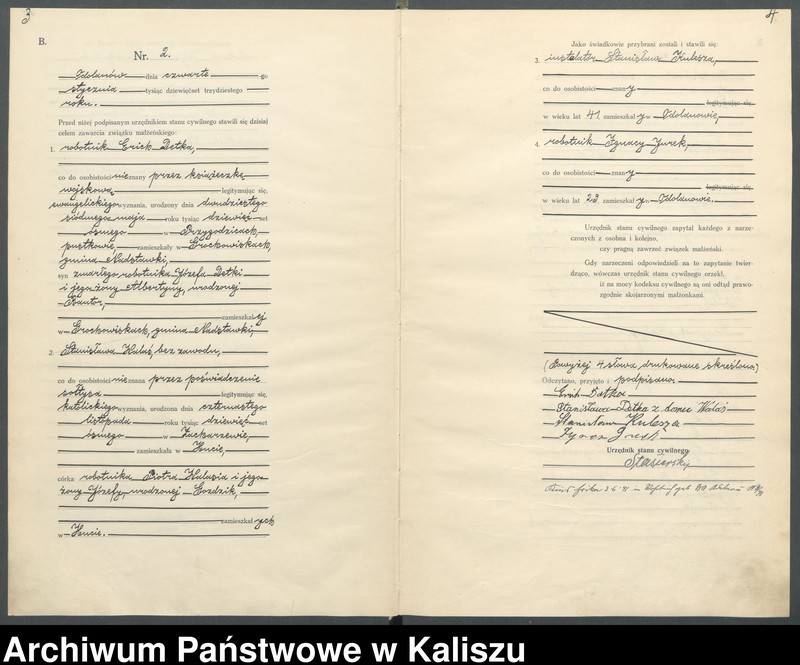 3
B.
Nr. 2.
Odolanów dnia czwarte go
stycznia tysiąc dziewięćset trzydziestego
roku.
Przed niżej podpisanym urzędnikiem stanu cywilnego stawili się dzisiaj
celem zawarcia związku małżeńskiego:
1. robotnik Erich Detka,
co do osobistości nieznany przez książeczkę
wojskową legitymując się,
ewangelickiego wyznania, urodzony dnia dwudziestego
siódmego maja roku tysiąc dziewięć set
ósmego w Przygodzicach,
pustkowie, zamieszkały w Grochowiskach,
gmina Nadstawki,
syn zmarłego robotnika Józefa Detki
i jego żony Albertyny, urodzonej
zamieszkał ej
w Grochowiskach, gmina Nadstawki,
2. Stanisława Kałaś, bez zawodu,
co do osobistości nieznana przez poświadczenie
sołtysa legitymując się,
katolickiego wyznania, urodzona dnia czternastego
listopada roku tysiąc dziewięć set
ósmego w Zacharzewie,
zamieszkała w Hucie,
córka robotnika Piotra Kałasia i jego
żony Józefy, urodzonej Gozdzik,
zamieszkał ych
w Hucie.
4
Jako świadkowie przybrani zostali i stawili się:
3. instalator Stanisław Kulesza,
co do osobistości znany
legitymując się,
w wieku lat 41, zamieszkały w Odolanowie,
4. robotnik Ignacy Jurek,
co do osobistości znany
legitymując się,
w wieku lat 23, zamieszkały w Odolanowie.
Urzędnik stanu cywilnego zapytał każdego z narze-
czonych z osobna i kolejno,
czy pragną zawrzeć związek małżeński.
Gdy narzeczeni odpowiedzieli na to zapytanie twier-
dząco, wówczas urzędnik stanu cywilnego orzekł,
iż na mocy kodeksu cywilnego są oni odtąd prawo-
zgodnie skojarzonymi małżonkami.
(Powyżej 4 słowa drukowane skreślono.)
Odczytano, przyjęto i podpisano.
Erich Detka
Stanisława Detka z domu Kałaś
Stanisław Kulesza
Ignacy Jurek
Urzędnik stanu cywilnego
Stasierski
Archiwum Państwowe w Kaliszu